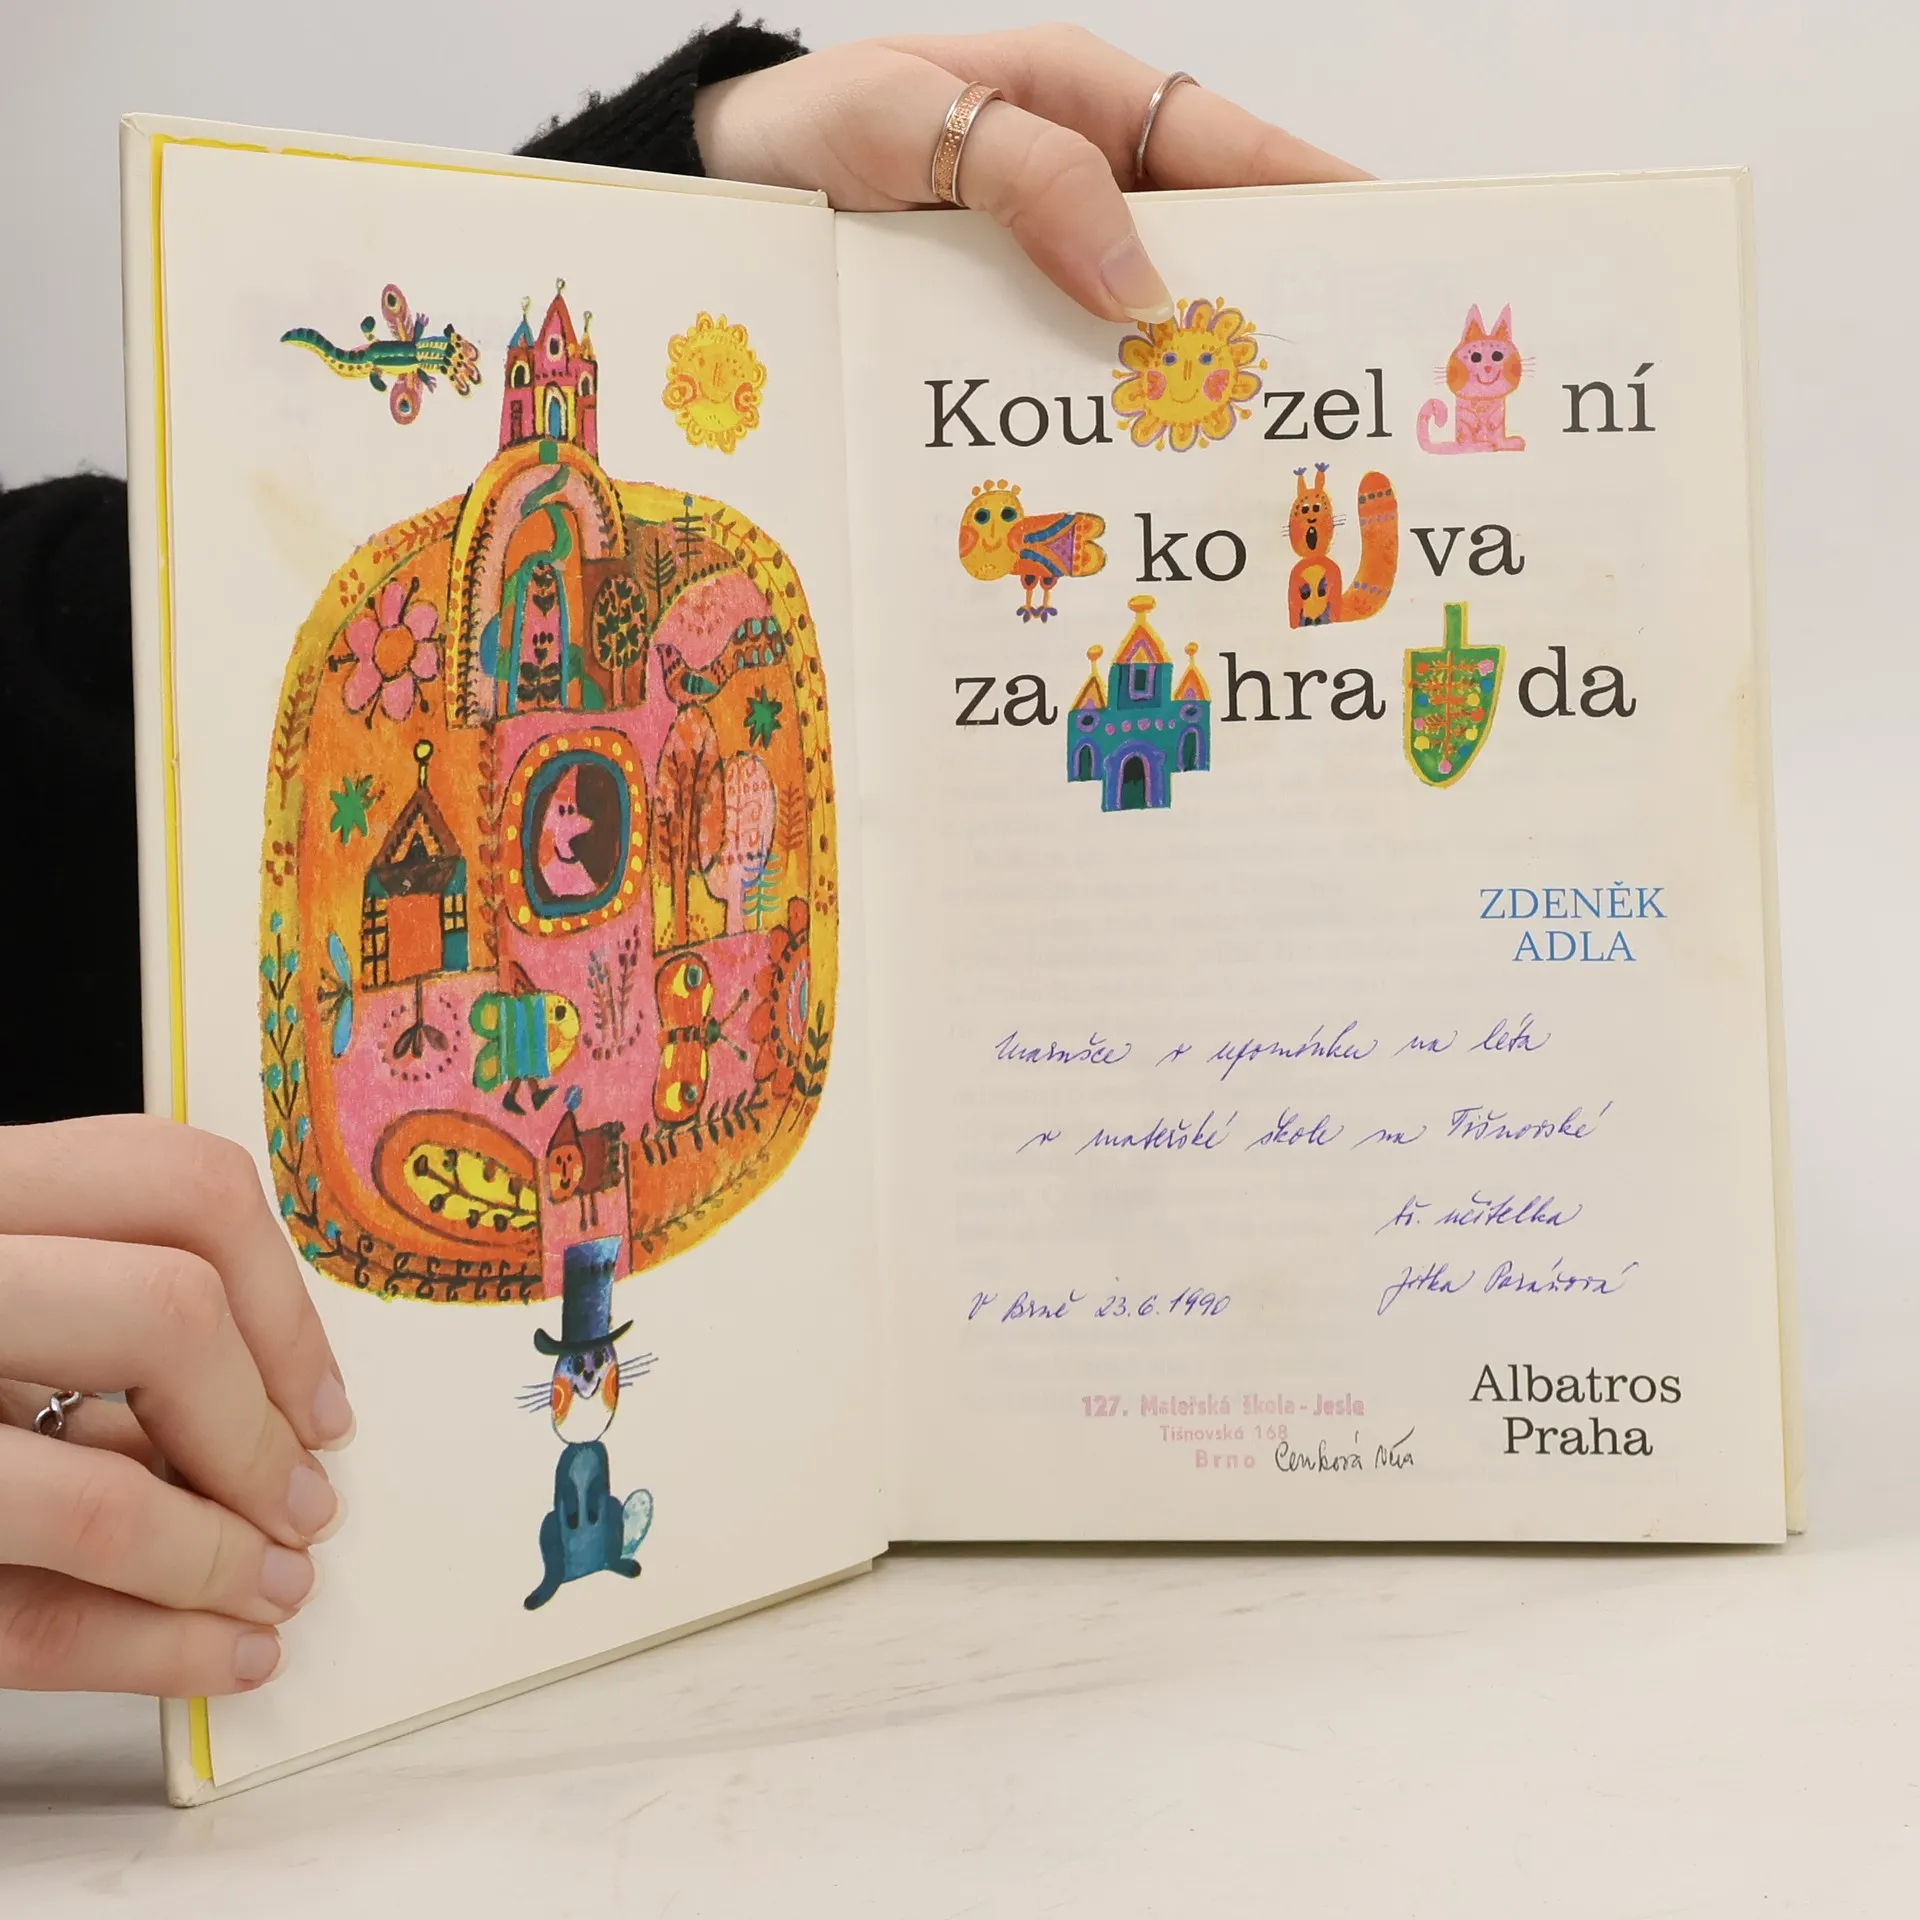 Kouzelní
kova
zahrada
ZDENĚK
ADLA
Marušce v upomínku na léta
v mateřské škole na Tišnovské
tř. učitelka
Jitka
V Brně 23.6.1990
127. Mateřská škola - Jesle
Tišnovská 168
Brno
Albatros
Praha